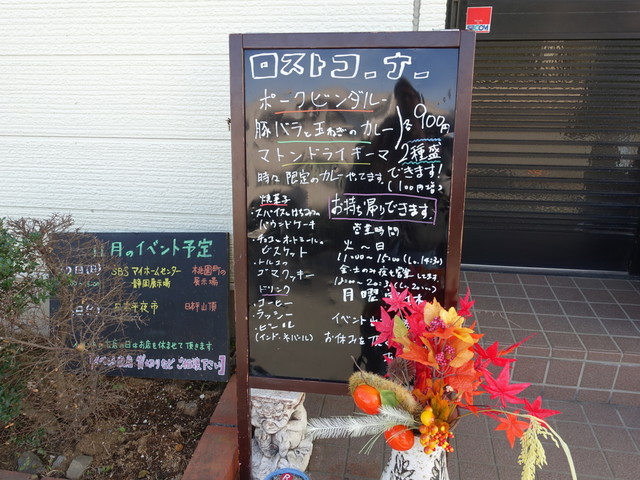 SECOM
ロストコーナー
ポークビンダルー
豚バラと玉ねぎのカレー
各900円
マトンドライキーマ
2種盛
できます!
(100円増)
時々限定のカレーやってます
お持ち帰りできます。
焼菓子
・スパイスとはちみつの
パウンドケーキ
・チョコとオートミールの
ビスケット
・トルコの
ゴマクッキー
ドリンク
・コーヒー
・ラッシー
・ビール
(インド・ネパール)
営業時間
火〜日
11:00〜15:00 (L.14:30)
金・土のみ夜も営業してます
月曜
イベント
お休み
11月のイベント予定
SBSマイホームセンター
静岡展示場
桃園町の
展示場
日本平夜市
日本平山頂
の日はお店も休ませて頂きます